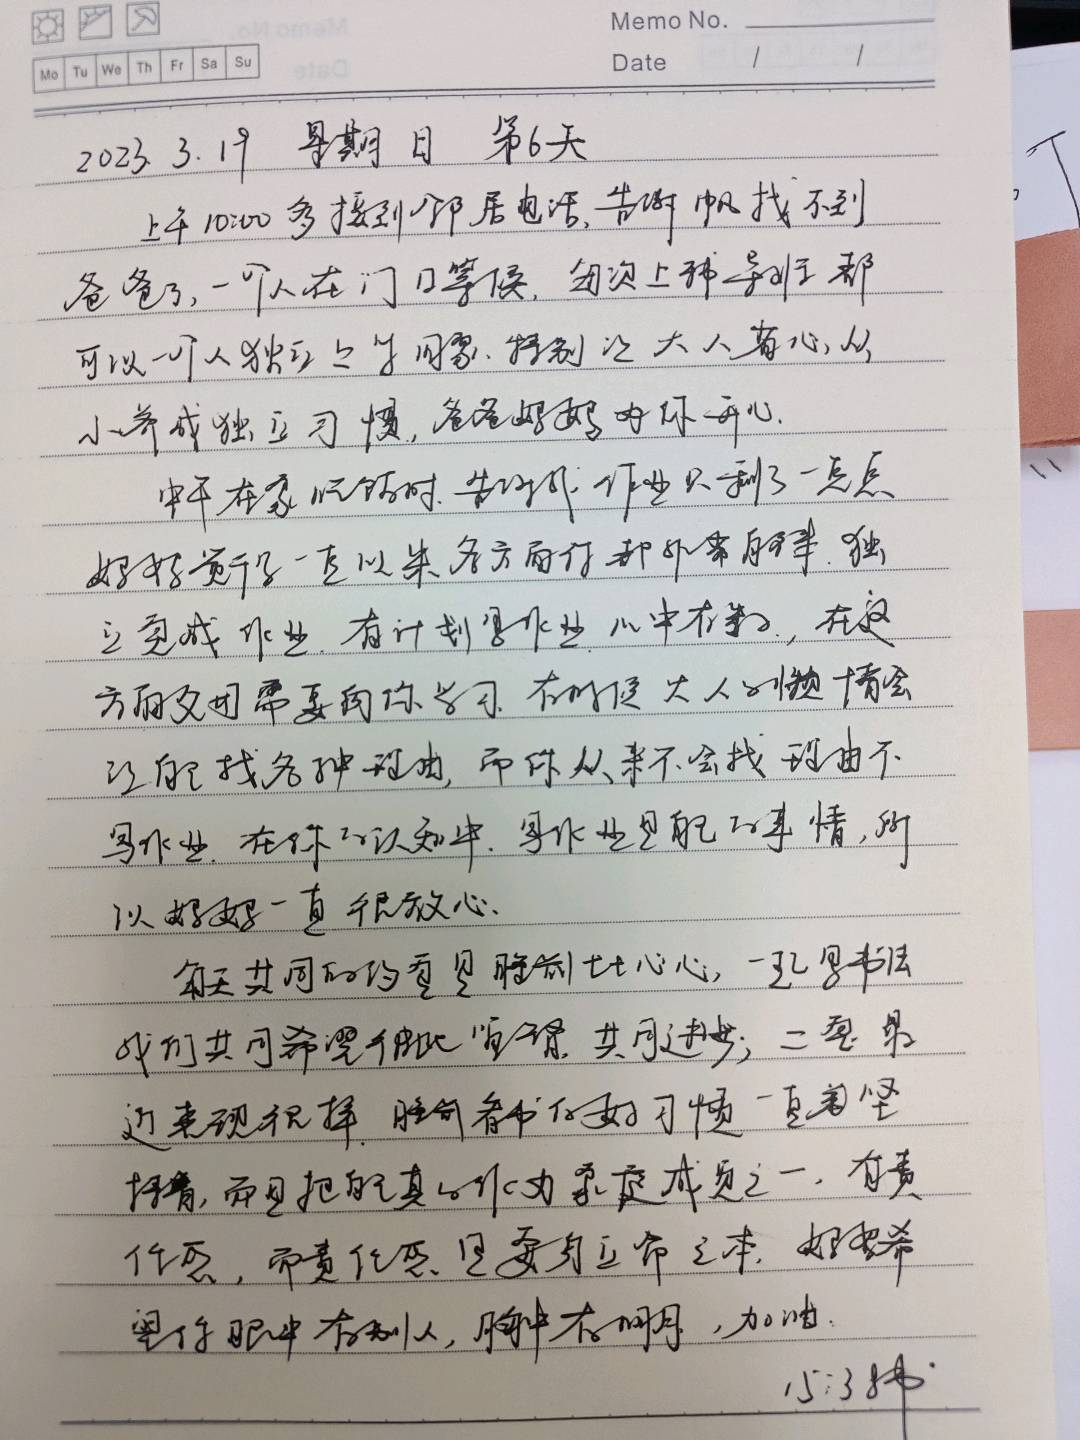 Memo No.
Mo Tu We Th Fr Sa Su
Date / /
2023.3.19 星期日 第6天
上午10:00多接到邻居电话,告诉帆找不到
爸爸了,一个人在门口等候,每次上辅导班都
可以一个人独立上学回家,特别让大人省心,从
小养成独立习惯,爸爸妈妈为你开心.
中午在家吃饭时,告诉我作业只剩了一点点
妈妈觉得一直以来各方面你都非常自律.独
立完成作业.有计划写作业,心中有数,在这
方面反而需要向你学习.有时候大人的惰情会
让自己找各种理由,而你从来不会找理由不
写作业.在你的认知中.写作业是自己的事情,所
以妈妈一直很放心.
每天共同的约定是睡前谈心,一
我们共同希望彼此,共同进步;二是最
近表现很棒.睡前看书的好习惯一直都坚
持着,而且把自己真的作为家庭成员之一,有责
任感,而责任感是安身立命之本.妈妈希
望你眼中有别人,胸中有明月,加油.
15:38